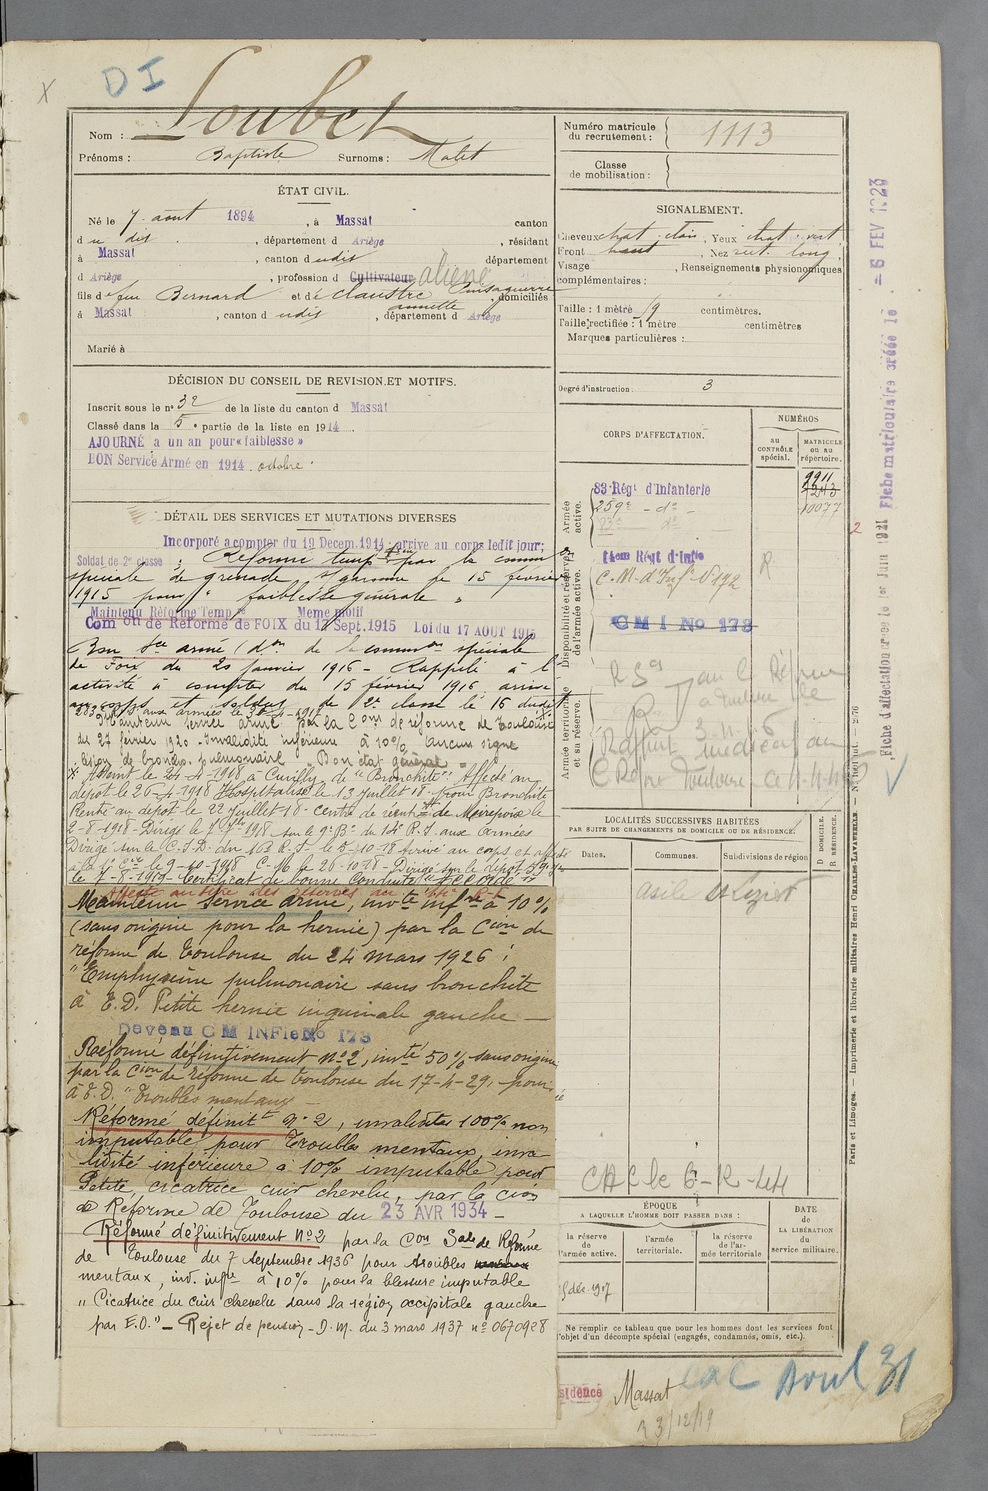 X
DI
Nom : Loubet
Prénoms : Baptiste Surnoms : Malet
ÉTAT CIVIL.
Né le 7 août 1894, à Massat canton
du dit, département d Ariège, résidant
à Massat, canton dudit département
d Ariège, profession d Cultivateur aliéné
fils de feu Bernard et de Claustre annette, domiciliés
à Massat, canton dudit, département d Ariège
Marié à
DÉCISION DU CONSEIL DE REVISION ET MOTIFS.
Inscrit sous le n° 32 de la liste du canton d Massat
Classé dans la 5e partie de la liste en 1914.
AJOURNÉ a un an pour « faiblesse »
BON Service Armé en 1914. octobre.
DÉTAIL DES SERVICES ET MUTATIONS DIVERSES
Incorporé a compter du 19 Decem. 1914 arrive au corps ledit jour;
Soldat de 2e classe; Réformé temp par la comm on
spéciale de grenade s/garonne le 15 février
1915 pour "faiblesse générale".
Maintenu Réforme Tempre Meme motif
Com on de Réforme de FOIX du 17 Sept. 1915 Loi du 17 AOUT 1915
Bon Sce armé (don de la common spéciale
de Foix du 20 janvier 1916 - Rappelé à l'
activité à compter du 15 février 1916 arrivé
au corps et soldat de 2e classe le 16 dudit
Maintenu service armé par la Com de réforme de Toulouse
du 27 février 1920. Invalidité inférieure à 10% aucun signe
lésion de broncho pulmonaire "Bon état général"
X Atteint le 24-4-1918 à Cuvilly, de "Bronchite" Affecté au
dépôt le 26-4-1918 Hospitalisé le 13 juillet 18 pour Bronchite
Rentré au dépôt le 22 juillet 18 - centre de réent de Mirepoix le
2-8-1918 - Dirigé le 7 7bre 1918 sur le 9e Bn du 14e R.I. aux armées
Dirigé sur le C.I.D. du 163 R.I. le 5-10-18 arrivé au corps et affecté
à la 1e Cie le 9-10-1918 C.M6 le 26-10-18 - Dirigé sur le dépôt 59e
le 7-8-1919 - Certificat de bonne Conduite "ACCORDÉ"
Maintenu Service armé, invté infre à 10%
(sans origine pour la hernie) par la Cion de
réforme de Toulouse du 24 mars 1926 ;
"Emphysème pulmonaire sans bronchite
à E.D. Petite hernie inguinale gauche —
Devenu C M INFie No 173
Réformé définitivement n°2, invté 50% sans origine
par la Cion de réforme de Toulouse du 17-4-29, pour
à E.D. "Troubles mentaux —
Réformé définitt n° 2, invalidité 100% non
imputable pour Troubles mentaux, inva
lidité inférieure à 10% imputable pour
Petite, cicatrice cuir chevelu, par la Cion
de Réforme de Toulouse du 23 AVR 1934 —
Réformé définitivement N°2 par la Con Sale de Réforme
de Toulouse du 7 septembre 1936 pour troubles
mentaux, inv. infre à 10% pour la blessure imputable
"Cicatrice du cuir chevelu dans la région occipitale gauche
par E.O." — Rejet de pension - D.M. du 3 mars 1937 n° 0670928
Numéro matricule du recrutement : 1113
Classe de mobilisation :
SIGNALEMENT.
Cheveux chat. clair, Yeux chat. vert
Front haut, Nez rect. long,
Visage , Renseignements physionomiques
complémentaires :
Taille : 1 mètre 59 centimètres.
Taille rectifiée : 1 mètre centimètres
Marques particulières :
Degré d'instruction 3
CORPS D'AFFECTATION.
NUMÉROS
au CONTRÔLE spécial.
MATRICULE ou au répertoire.
Armée active.
83e Régt d'Infanterie 9911
259e - do - 7243
10077
2
Disponibilité et réserve de l'armée active.
14eme Régt d'Infie
C.M. d'Infie N°192
R
C M I No 173
Armée territoriale et sa réserve.
LOCALITÉS SUCCESSIVES HABITÉES
PAR SUITE DE CHANGEMENTS DE DOMICILE OU DE RÉSIDENCE.
Dates. Communes. Subdivisions de région
D DOMICILE.
R RÉSIDENCE.
asile St Lizier
CAC le 6-12-44
ÉPOQUE
A LAQUELLE L'HOMME DOIT PASSER DANS :
DATE de LA LIBÉRATION du service militaire.
la réserve de l'armée active.
l'armée territoriale.
la réserve de l'armée territoriale
Ne remplir ce tableau que pour les hommes dont les services font
l'objet d'un décompte spécial (engagés, condamnés, omis, etc.).
sidence Massat
CAC Avril 31
23/12/19
Paris et Limoges. — Imprimerie et librairie militaires Henri CHARLES-LAVAUZELLE.
Fiche matriculaire créée le - 6 FEV 1923